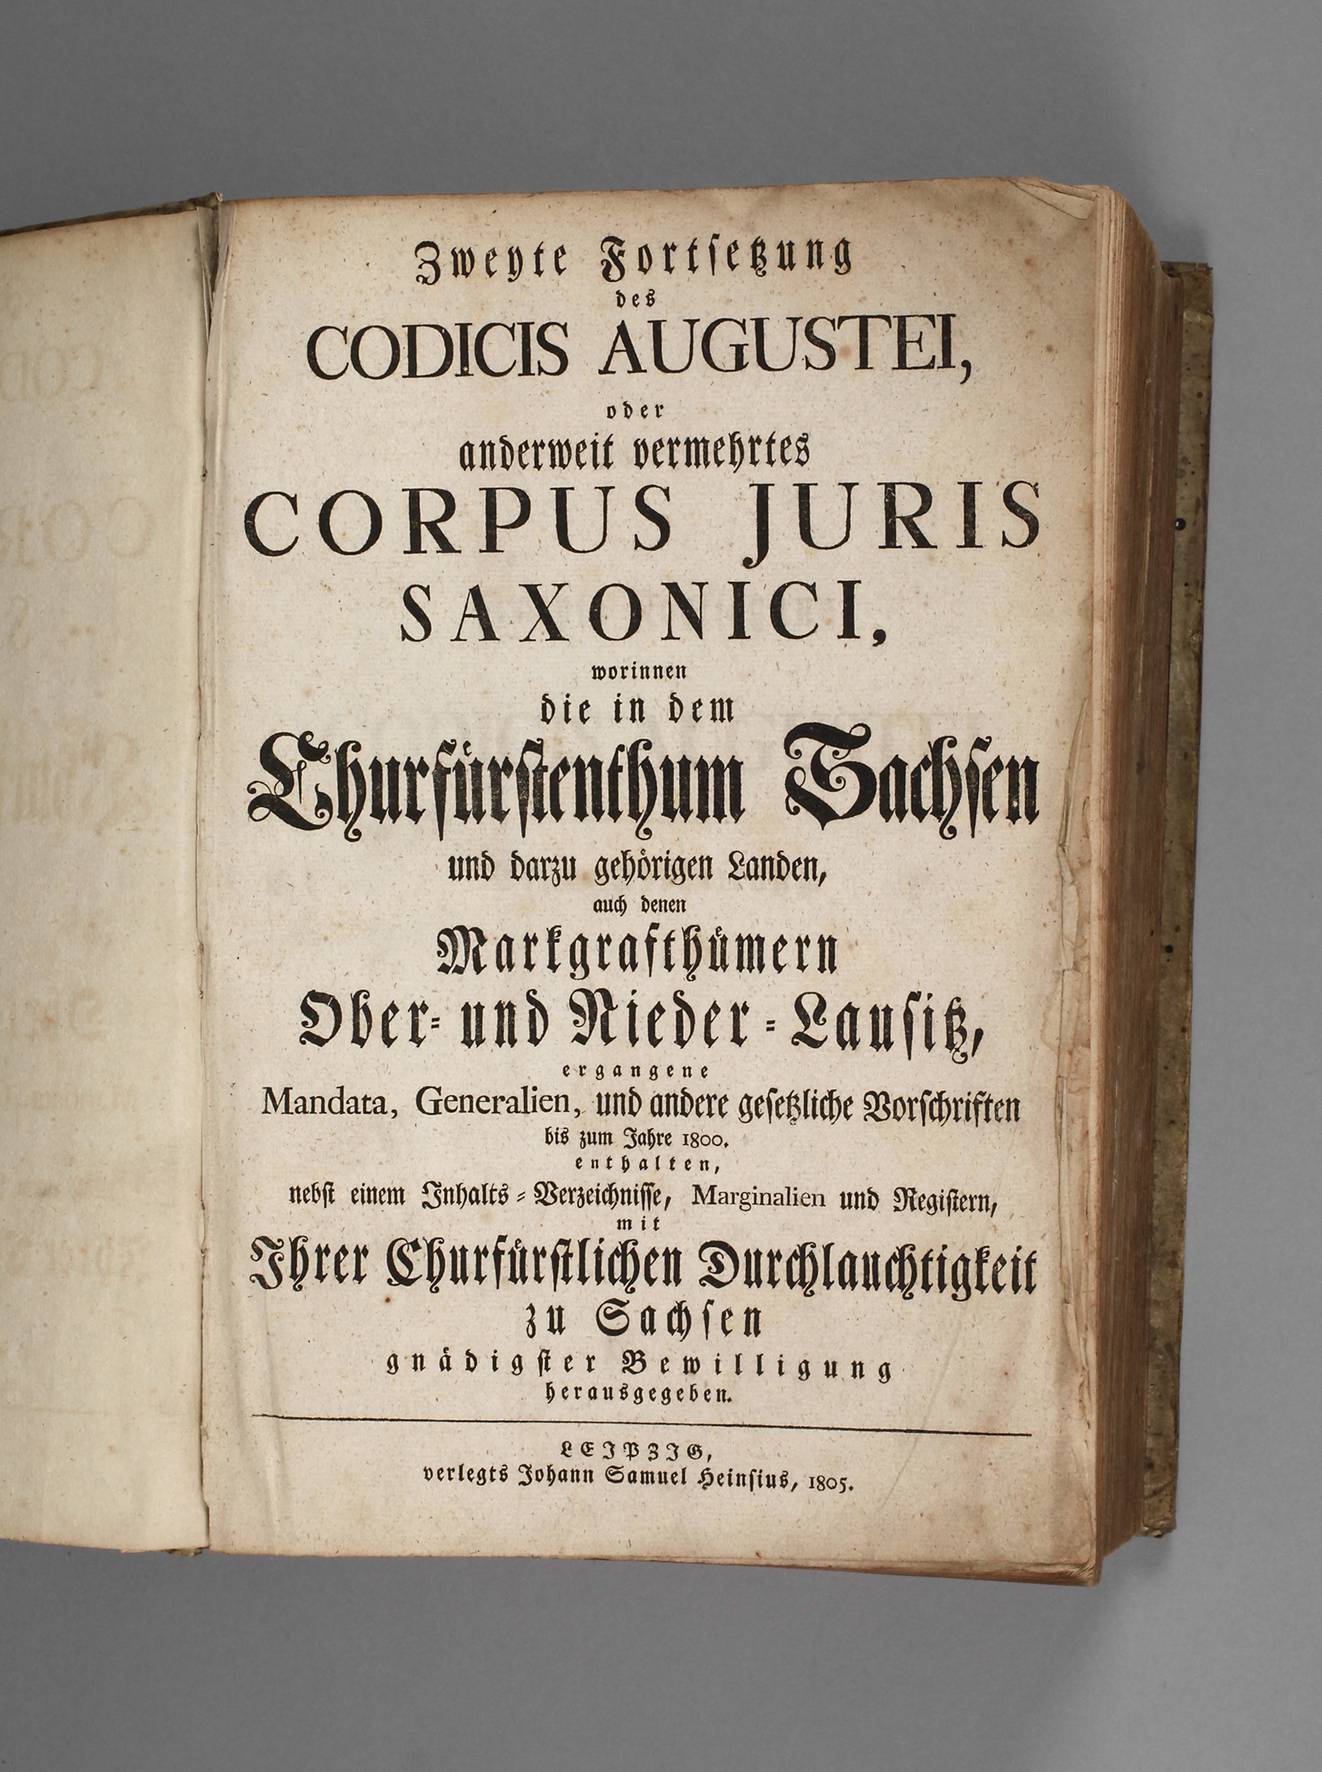 Zweyte Fortsetzung
des
CODICIS AUGUSTEI,
oder
anderweit vermehrtes
CORPUS JURIS
SAXONICI,
worinnen
die in dem
Churfürstenthum Sachsen
und darzu gehörigen Landen,
auch denen
Markgrafthümern
Ober- und Nieder-Lausitz,
ergangene
Mandata, Generalien, und andere gesetzliche Vorschriften
bis zum Jahre 1800.
enthalten,
nebst einem Inhalts-Verzeichnisse, Marginalien und Registern,
mit
Ihrer Churfürstlichen Durchlauchtigkeit
zu Sachsen
gnädigster Bewilligung
herausgegeben.
LEIPZIG,
verlegts Johann Samuel Heinsius, 1805.